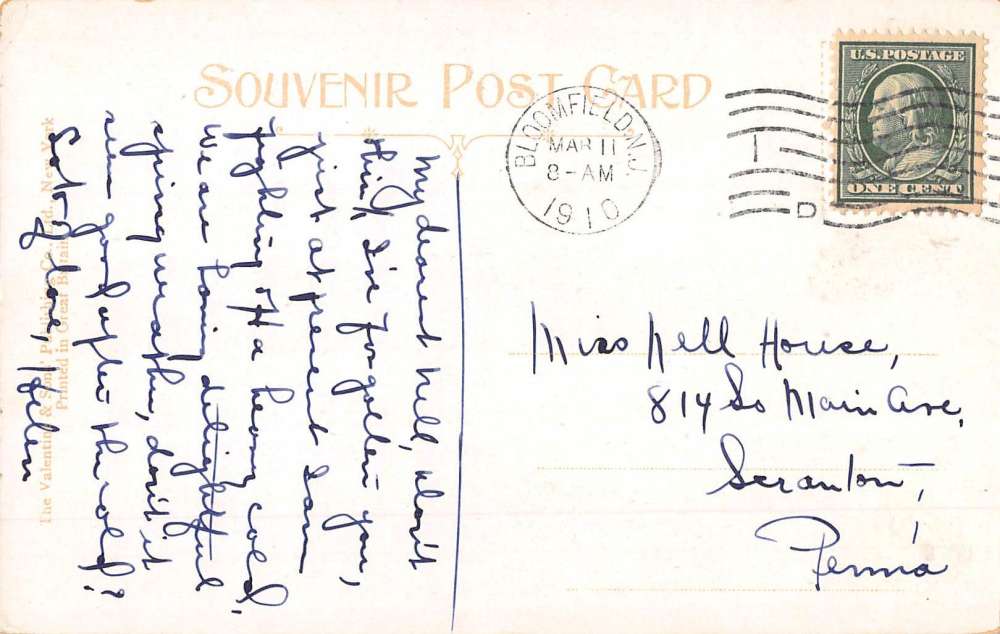 SOUVENIR POST CARD
BLOOMFIELD, N.J.
MAR 11
8-AM
1910
D
U.S. POSTAGE
ONE CENT
My dearest Nell, don't
think I've forgotten you,
just at present I am
fighting off a heavy cold.
We are having delightful
spring weather, don't it
seem good after the cold?
Lots of love, Helen
Miss Nell House,
814 So Main Ave.
Scranton,
Penn'a
The Valentine & Sons' Publishing Co., Ltd., New York
Printed in Great Britain